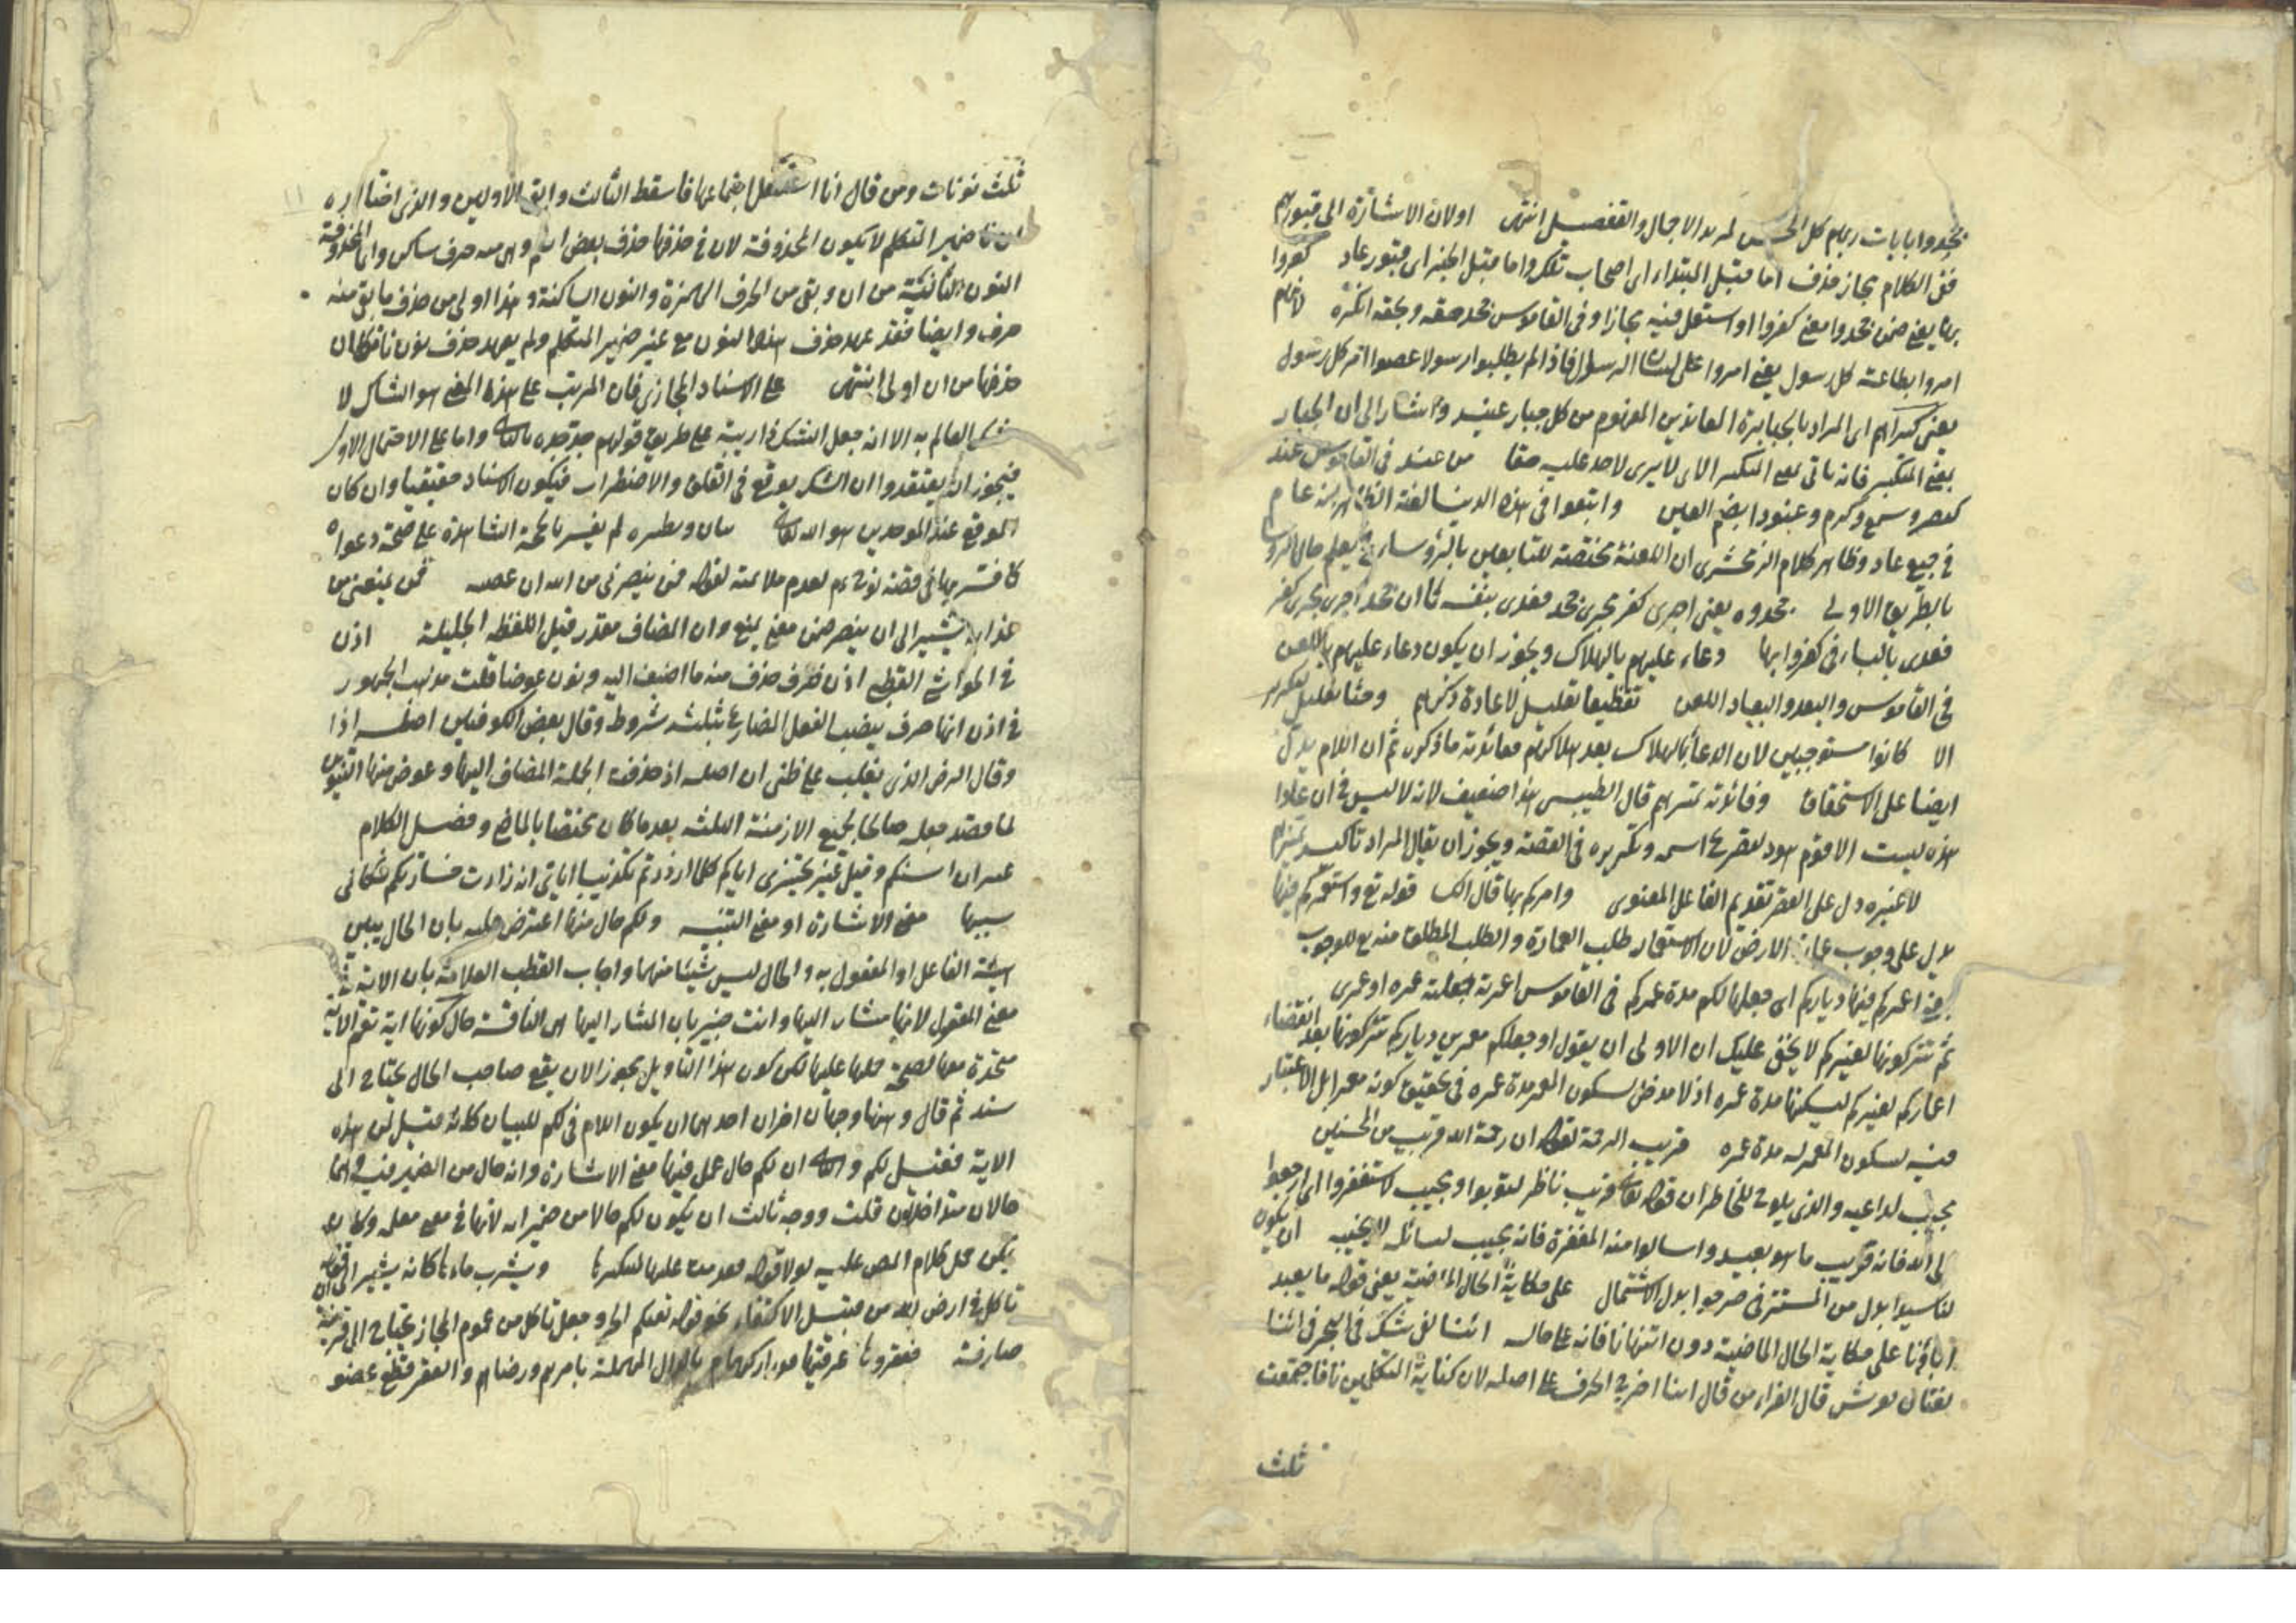 جحدوا بايات ربهم كل الحسن لمريد الاجمال والتفصيل انتهى اولان الاشارة الى قبورهم
ففى الكلام مجاز حذف اما قبل المبتداء اى اصحاب تلك واما قبل الخبر اى قبور عاد كفروا
بها يعنى ضمن جحدوا معنى كفروا او استعمل فيه مجازا وفى القاموس جحد حقه وبحقه انكره لانهم
امروا بطاعة كل رسول يعنى امروا على لسان الرسول فاذا لم يطلبوا رسولا عصوا امر كل رسول
يعنى كبراهم اى المراد بالجبابرة المعاندين المفهوم من كل جبار عنيد واشار الى ان الجبار
بمعنى المتكبر فانه ياتى بمعنى المتكبر الذى لا يرى لاحد عليه حقا من عند فى القاموس عند
كنصر وسمع وكرم وعنودا بضم العين واتبعوا فى هذه الدنيا لعنة الظاهر انه عام
فى جميع عاد وظاهر كلام الزمخشرى ان اللعنة مختصة للتابعين بالرؤساء فيعلم حال الروسا
بالطريق الاولى جحدوه يعنى اجرى كفر مجرى جحد فعدى بنفسه كما ان جحد اجرى مجرى كفر
فعدى بالباء فى كفروا بها دعاء عليهم بالهلاك ويجوز ان يكون دعاء عليهم باللعن
فى القاموس والبعد والبعاد اللعن تفظيعا تعليل لاعادة ذكرهم وحثا تعليل لتكرير
الا كانوا مستوجبين لان الدعاء بالهلاك بعد هلاكهم فائدته ما ذكره ثم ان اللام يدل
ايضا على الاستحقاق وفائدته تميزهم قال الطيبى هذا ضعيف لانه لا لبس فى ان عادا
هذه ليست الا قوم هود لتصريح اسمه وتكريره فى القصة ويجوز ان يقال المراد تاكيد تميزهم
لا غيره دل على الحصر تقديم الفاعل المعنوى وامركم بها قال قوله تع واستعمركم فيها
يدل على وجوب عمارة الارض لان الاستعمار طلب العمارة والطلب المطلق منه تع للوجوب
اعمركم فيها دياركم اى جعلها لكم مدة عمركم فى القاموس اعمرته جعلته عمره او عمرى
ثم تتركونها لغيركم لا يخفى عليك ان الاولى ان يقول او جعلكم معمرين دياركم تتركونها بعد انقضاء
اعماركم لغيركم ليسكنها مدة عمره اذ لا مدخل لسكون المعمر مدة عمره فى تحقيق كونه معمرا بل الاعتبار
فيه لسكون المعمر له مدة عمره قريب الرحمة لقوله ان رحمة الله قريب من المحسنين
مجيب لداعيه والذى يلوح للخاطر ان قوله تعالى قريب ناظر لتوبوا ومجيب لاستغفروا اى ارجعوا
الى الله فانه قريب ما هو بعيد واسالوا منه المغفرة فانه مجيب لسائله لا يخيبه ان يكون
لنا سيدا بدل من المستتر فى مرجوا بدل الاشتمال على حكاية الحال الماضية يعنى قوله ما يعبد
اباؤنا على حكاية الحال الماضية دون اتنهانا فانه على حاله اننا لفى شك فى البحر فى اننا
لغتان لقريش قال الفراء من قال اننا اخرج الحرف على اصله لان كناية المتكلمين نا فاجتمعت
ثلث
ثلث نونات ومن قال انا استثقل اجتماعها فاسقط الثالث وابقى الاوليين والذى اختاره
ان نا ضمير المتكلم لا يكون المحذوفة لان فى حذفها حذف بعض اسم وبقى منه حرف ساكن وانما المحذوفة
النون الثانية من ان وبقى من الحرف الهمزة والنون الساكنة وهذا اولى من حذف ما بقى منه
حرف وايضا فقد عهد حذف هذا النون مع غير ضمير المتكلم ولم يعهد حذف نون نا فكان
حذفها من ان اولى انتهى على الاسناد المجازى فان المرتب على هذه المعنى هو الشاك لا
العالم به الا انه جعل الشك ذا ريبة على طريق قولهم جد جده واما على الاحتمال الاول
فيجوز ان يعتقدوا ان الشك يوقع فى القلق والاضطراب فيكون الاسناد حقيقيا وان كان
الموقع عند الموحدين هو الله تعالى بيان وبصيرة لم يفسر بالحجة الشاهدة على صحة دعواه
كما فسر بها فى قصة نوح لعدم ملائمة لقوله فمن ينصرنى من الله ان عصيته فمن يمنعنى من
عذابه يشير الى ان ينصر ضمن معنى يمنع وان المضاف مقدر قبل اللفظة الجليلة اذن
فى الحواشى القطبى اذن ظرف حذف منه ما اضيف اليه ونون عوضا قلت مذهب الجمهور
فى اذن انها حرف ينصب الفعل المضارع بثلثة شروط وقال بعض الكوفيين اصله اذا
وقال الرضى الذى يغلب على ظنى ان اصله اذ حذفت الجملة المضاف اليها وعوض منها التنوين
لما قصد جعله صالحا لجميع الازمنة الثلثة بعد ما كان مختصا بالماضى وفصل الكلام
غير ان اسنكم وقيل غير تخسيرى اياكم كلما ازددتم تكذيبا اياى ازدادت خسارتكم فكانى
سببها معنى الاشارة او معنى التنبيه ولكم حال منها اعترض عليه بان الحال يبين
هيئة الفاعل او المفعول به والحال ليس شيئا منهما واجاب القطب العلامة بان الاية فى
معنى المفعول لانها مشار اليها وانت خبير بان المشار اليها هى الناقة حال كونها اية نعم الاية
متحدة معها لصحة حملها عليها لكن كون هذا التاويل مجوزا لان يقع صاحب الحال يحتاج الى
سند ثم قال وههنا وجهان اخران احدهما ان يكون اللام فى لكم للبيان كانه قيل لمن هذه
الاية فقيل لكم والثانى ان لكم حال عمل فيها معنى الاشارة وانه حال من الضمير فيه فهما
حالان متداخلان قلت ووجه ثالث ان يكون لكم حالا من ضمير اية لانها فى معنى معلمة
يمكن حمل كلام المص عليه لولا قوله تقدمت عليها لتنكيرها ويشرب ماءها كانه يشير الى ان قوله
تاكل فى ارض الله من قبيل الاكتفاء نحو قوله تقيكم الحر وجعل تاكل من عموم المجاز يحتاج الى قرينة
صارفة فعقروها عرقبها بالدال المهملة بامرهم ورضاهم والعقر قطع عضو